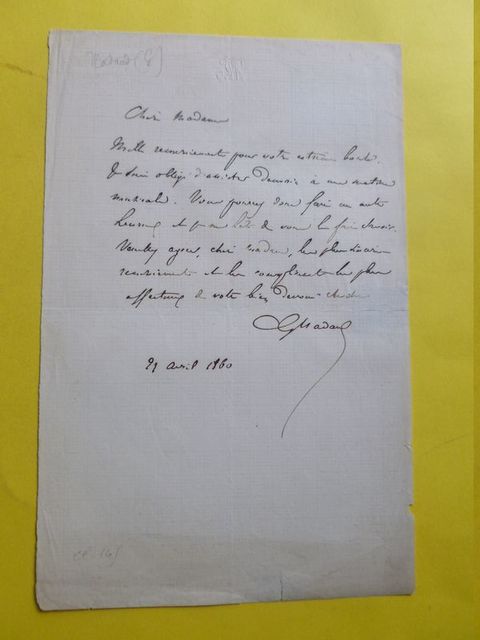 Chère Madame
Mille remerciements pour votre extrême bonté.
Je suis obligé d'assister demain à une matinée
musicale. Vous pourrez donc faire un autre
heureux et de vous le faire savoir.
Veuillez agréer, chère Madame, les plus sincères
remerciements et les compliments les plus
affectueux de votre bien dévoué
29 avril 1860